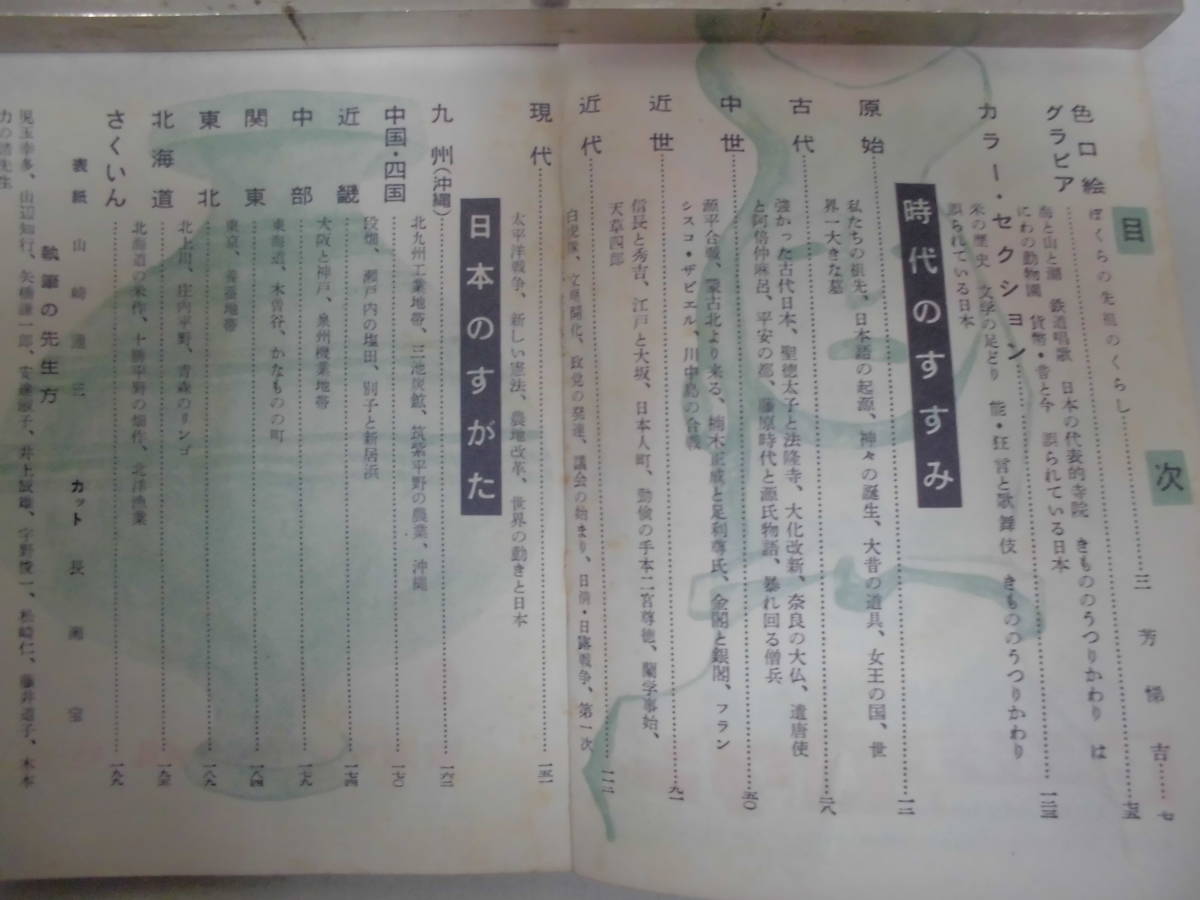 目次
色口絵 ぼくらの先祖のくらし……三芳悌吉……七
グラビア……七五
海と山と湖 鉄道唱歌 日本の代表的寺院 きもののうつりかわり は
にわの動物園 貨幣・昔と今 誤られている日本
カラー・セクション……一二三
米の歴史 文学の足どり 能・狂言と歌舞伎 きもののうつりかわり
誤られている日本
時代のすすみ
原始……一二
私たちの祖先、日本語の起源、神々の誕生、大昔の道具、女王の国、世
界一大きな墓
古代……二八
強かった古代日本、聖徳太子と法隆寺、大化改新、奈良の大仏、遣唐使
と阿倍仲麻呂、平安の都、藤原時代と源氏物語、暴れ回る僧兵
中世……五〇
源平合戦、蒙古北より来る、楠木正成と足利尊氏、金閣と銀閣、フラン
シスコ・ザビエル、川中島の合戦
近世……九一
信長と秀吉、江戸と大坂、日本人町、勤倹の手本二宮尊徳、蘭学事始、
天草四郎
近代……一一二
白虎隊、文明開化、政党の発達、議会の始まり、日清・日露戦争、第一次
現代……一五一
太平洋戦争、新しい憲法、農地改革、世界の動きと日本
日本のすがた
九州(沖縄)……一六二
北九州工業地帯、三池炭鉱、筑紫平野の農業、沖縄
中国・四国……一七〇
段畑、瀬戸内の塩田、別子と新居浜
近畿……一七四
大阪と神戸、泉州機業地帯
中部……一七九
東海道、木曽谷、かなものの町
関東……一八四
東京、養蚕地帯
東北……一八九
北上山、庄内平野、青森のリンゴ
北海道……一九三
北海道の米作、十勝平野の畑作、北洋漁業
さくいん……一九九
表紙 山崎 三 カット 長 宝
執筆の先生方
児玉幸多、山辺知行、矢橋謙一郎、安達淑子、井上誠雄、宇野俊一、松崎仁、藤井道子、木本
力の諸先生